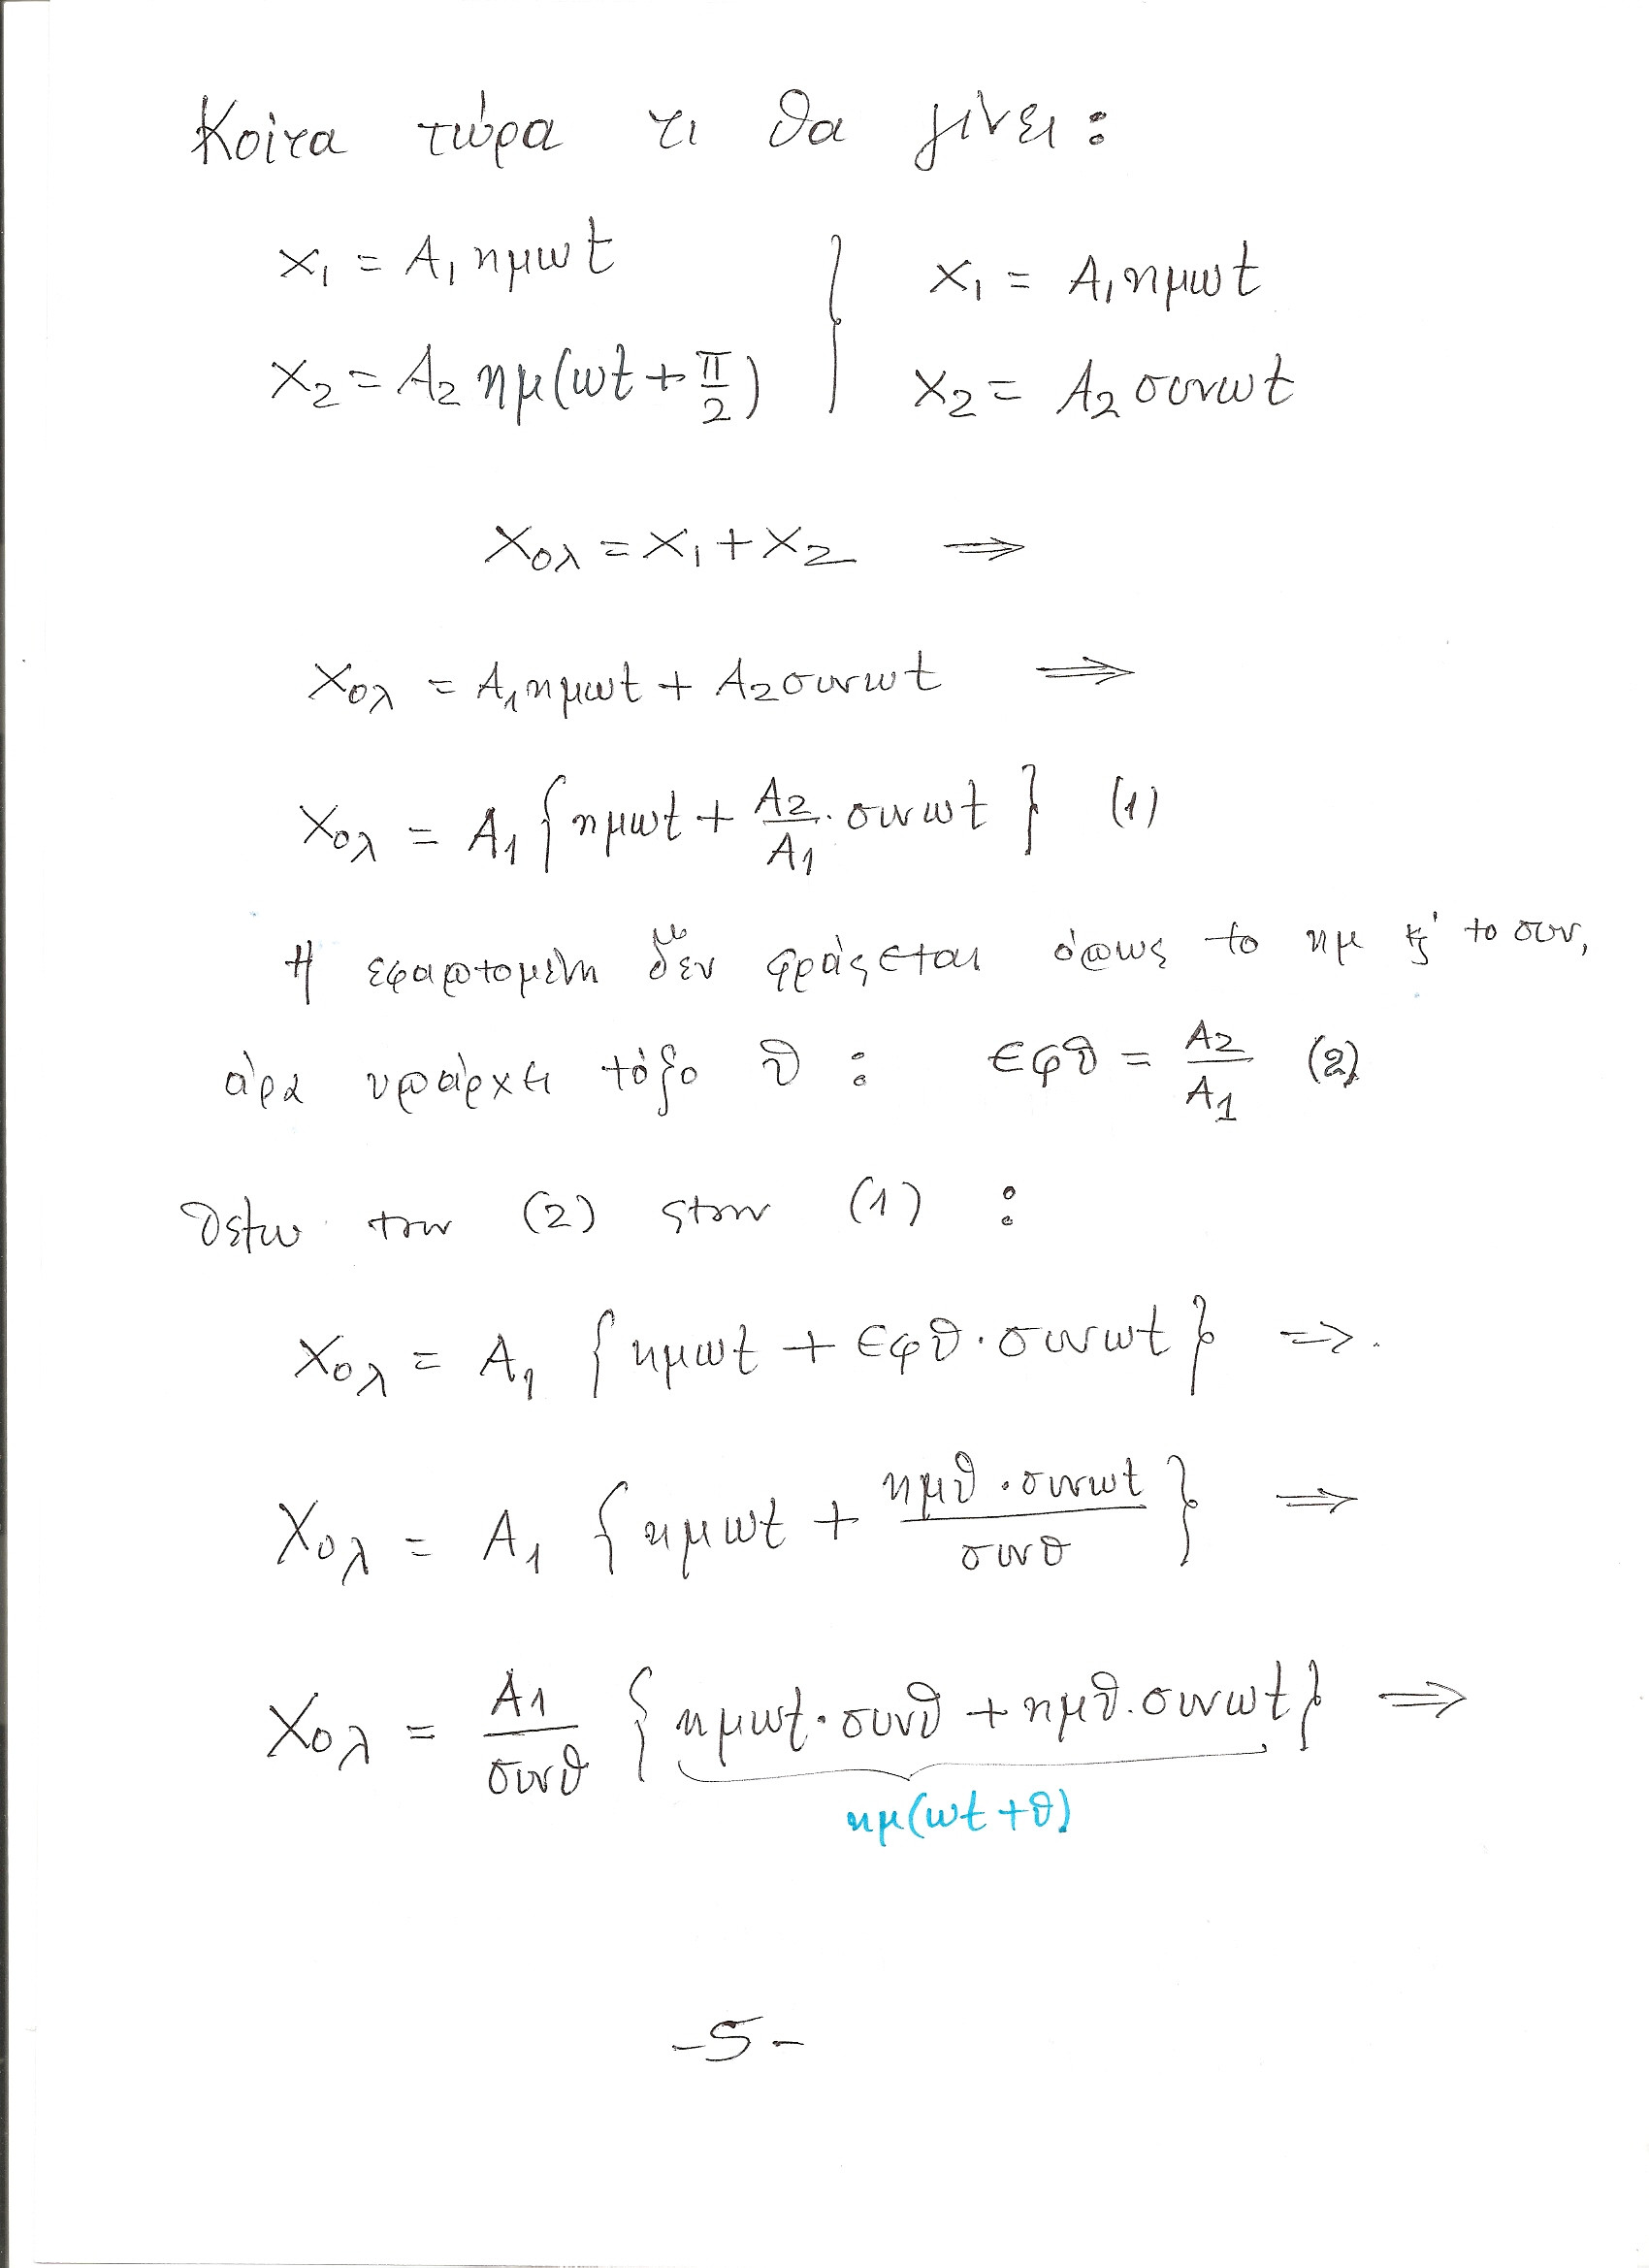 Κοίτα τώρα τι θα γίνει :
x₁ = A₁ ημωt } x₁ = A₁ημωt
x₂ = A₂ ημ(ωt + π/2) } x₂ = A₂ συνωt
xολ = x₁ + x₂ ⇒
xολ = A₁ημωt + A₂συνωt ⇒
xολ = A₁ { ημωt + A₂/A₁ · συνωt } (1)
Η εφαπτομένη δεν φράζεται όπως το ημ κ' το συν,
άρα υπάρχει τόξο θ : εφθ = A₂/A₁ (2)
θέτω την (2) στην (1) :
xολ = A₁ { ημωt + εφθ · συνωt } ⇒.
xολ = A₁ { ημωt + ημθ · συνωt / συνθ } ⇒
xολ = A₁/συνθ { ημωt · συνθ + ημθ · συνωt } ⇒
ημ(ωt + θ)
-5-